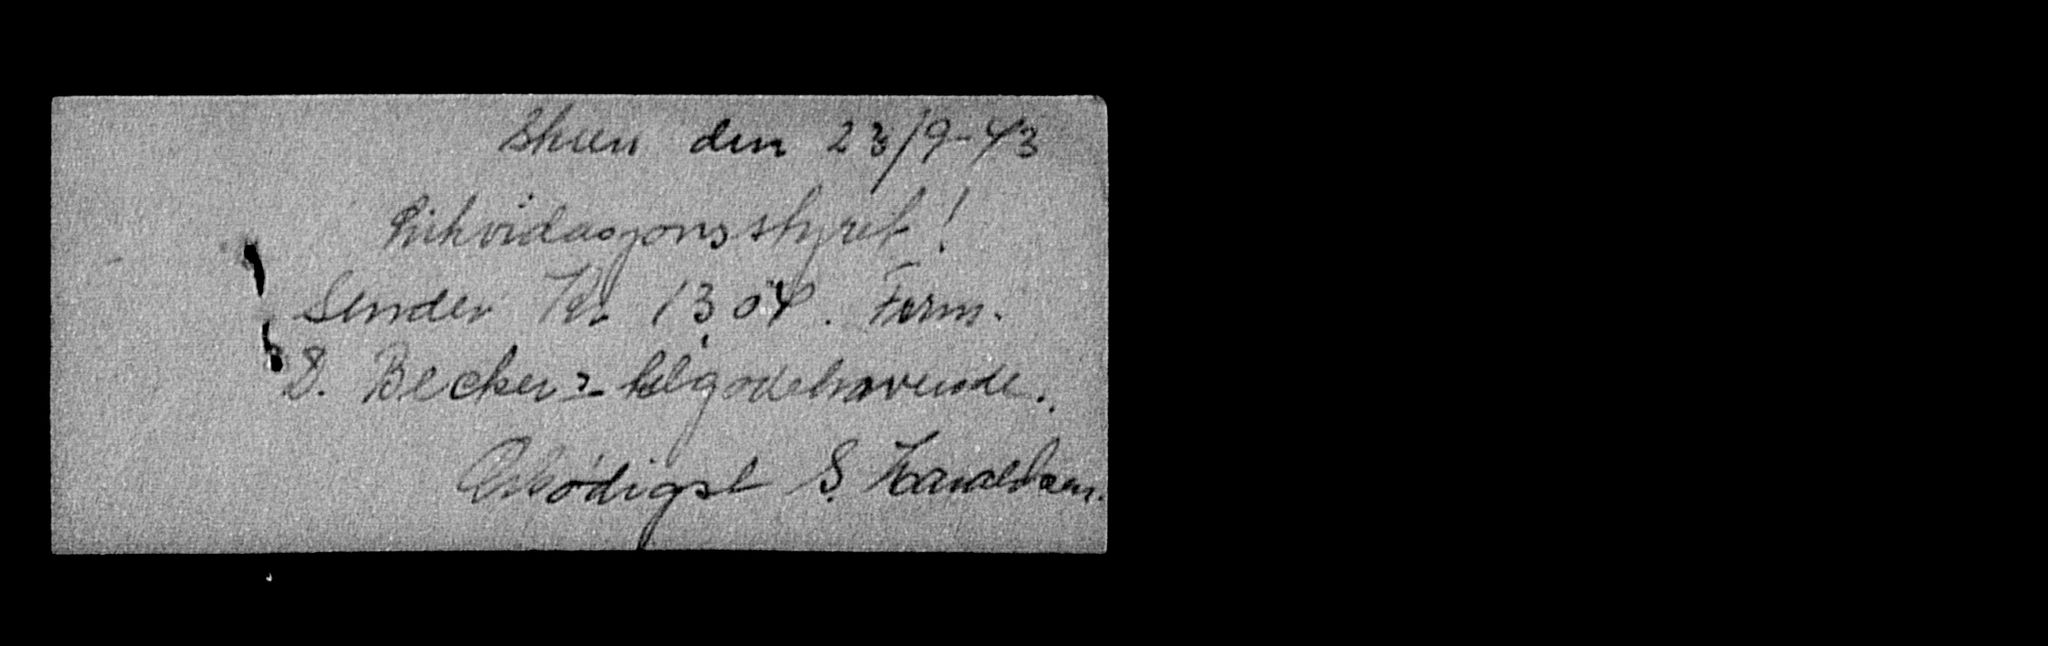 Skien den 23/9-43
Likvidasjonsstyret!
Sender Kr 13,04. Ferm.
D. Becker's tilgodehavende.
Ærbødigst S. Haraldsen.